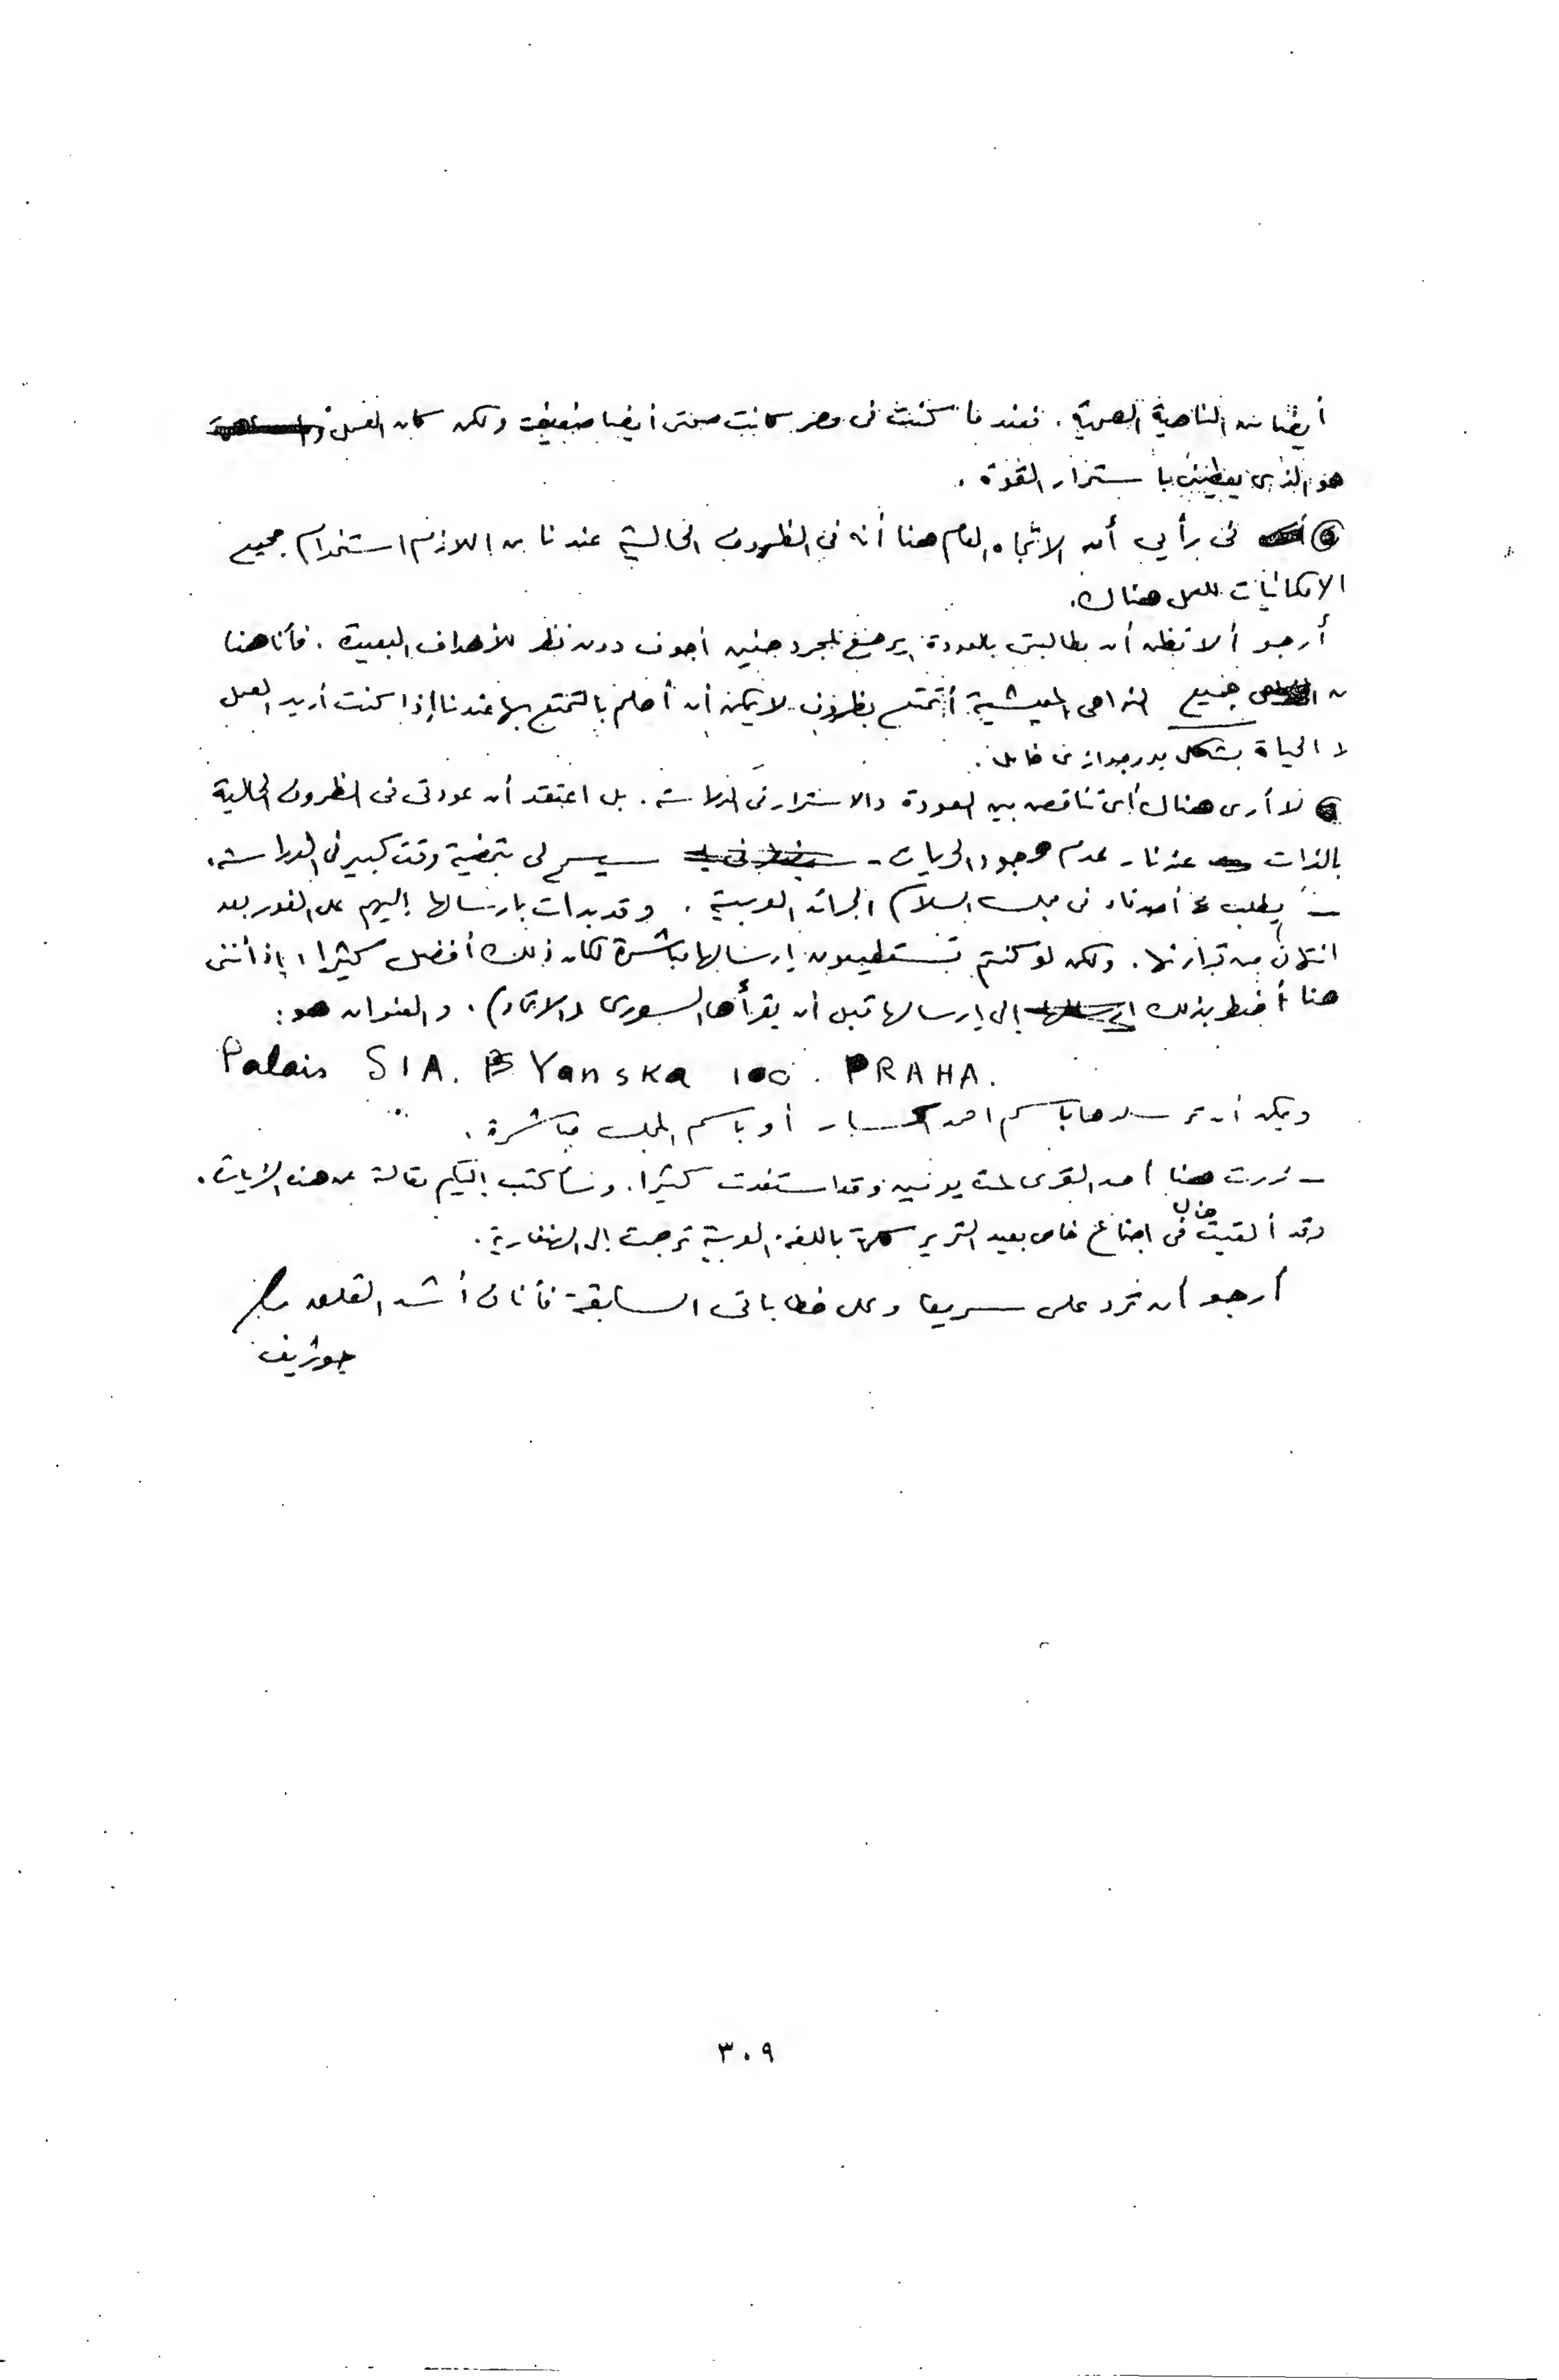 أيضا من الناحية الصحية. فعندما كنت في مصر كانت صحتى أيضا ضعيفة ولكن كان العمل
هو الذى يعطينى باستمرار القوة.
في رأيي أن الاتجاه العام هنا أنه في الظروف الحالية عندنا من اللازم استخدام جميع
الامكانيات للعمل هناك.
أرجو ألا تظن أن مطالبتى بالعودة يرجع لمجرد حنين أجوف دون نظر للأهداف البعيدة. فأنا هنا
من جميع النواحى المعيشية أتمتع بظروف لا يمكن أن أحلم بالتمتع بها عندنا إذا كنت أريد العمل
لا الحياة بشكل بورجوازى
لا أرى هناك أى تناقض بين العودة والاستمرار في الدراسة. بل اعتقد أن عودتى في الظروف الحالية
بالذات عندنا - عدم وجود الحريات - سيسمح لى بتمضية وقت كبير في الدراسة.
- يطلب أصدقاء في مجلس السلام الجرائد العربية. وقد بدأت بإرسالها إليهم على الفور بعد
انتهائى من قراءتها. ولكن لو كنتم تستطيعون إرسالها مباشرة لكان ذلك أفضل كثيرا، إذ أننى
هنا أضطر بذلك إلى إرسالها قبل أن يقرأها السورى (الاتحاد). والعنوان هو:
Palais SIA. Yanska 100. PRAHA.
ويمكن أن ترسلوها باسم احمد أو باسم المجلس مباشرة.
- زرت هنا احد القرى لمدة يومين وقد استفدت كثيرا. وسأكتب إليكم مقالة عن هذه الزيارة.
وقد ألقيت هناك في اجتماع خاص بعيد التحرير كلمة باللغة العربية ترجمت إلى الهنغارية.
أرجو أن ترد على سريعا وعلى خطاباتى السابقة فأنا في أشد القلق
جوزيف
٣٠٩